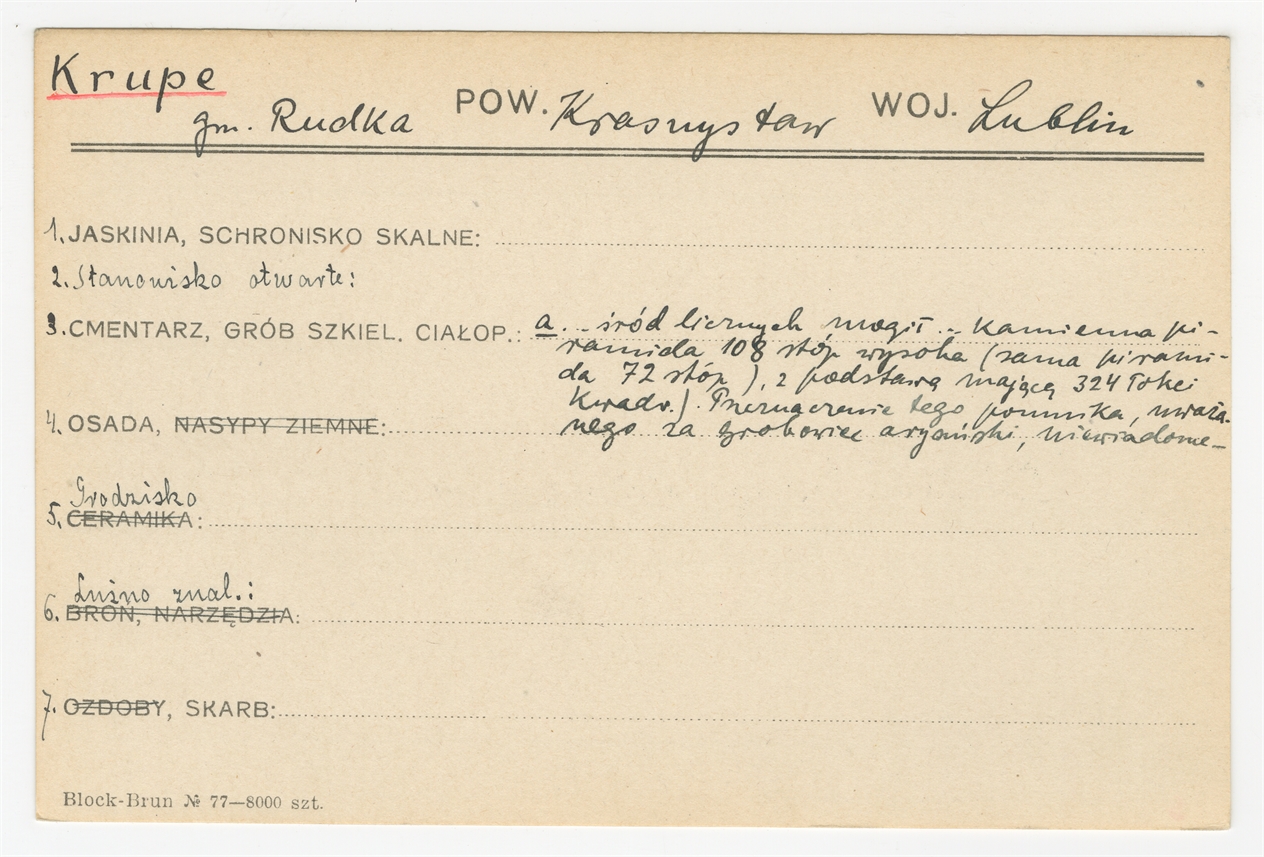 Krupe
gm. Rudka POW. Krasnystaw WOJ. Lublin
1. JASKINIA, SCHRONISKO SKALNE:
2. Stanowisko otwarte:
3. CMENTARZ, GRÓB SZKIEL. CIAŁOP.: a. .. śród licznych mogił .. kamienna pi-
ramida 108 stóp wysoka (sama pirami-
da 72 stóp), z podstawą mającą 324 łokci
kwadr.). Przeznaczenie tego pomnika, uważa-
4. OSADA, NASYPY ZIEMNE: nego za grobowiec aryański, niewiadome_
Grodzisko
5. CERAMIKA:
Luźno znal.:
6. BROŃ, NARZĘDZIA:
7. OZDOBY, SKARB:
Block-Brun № 77—8000 szt.